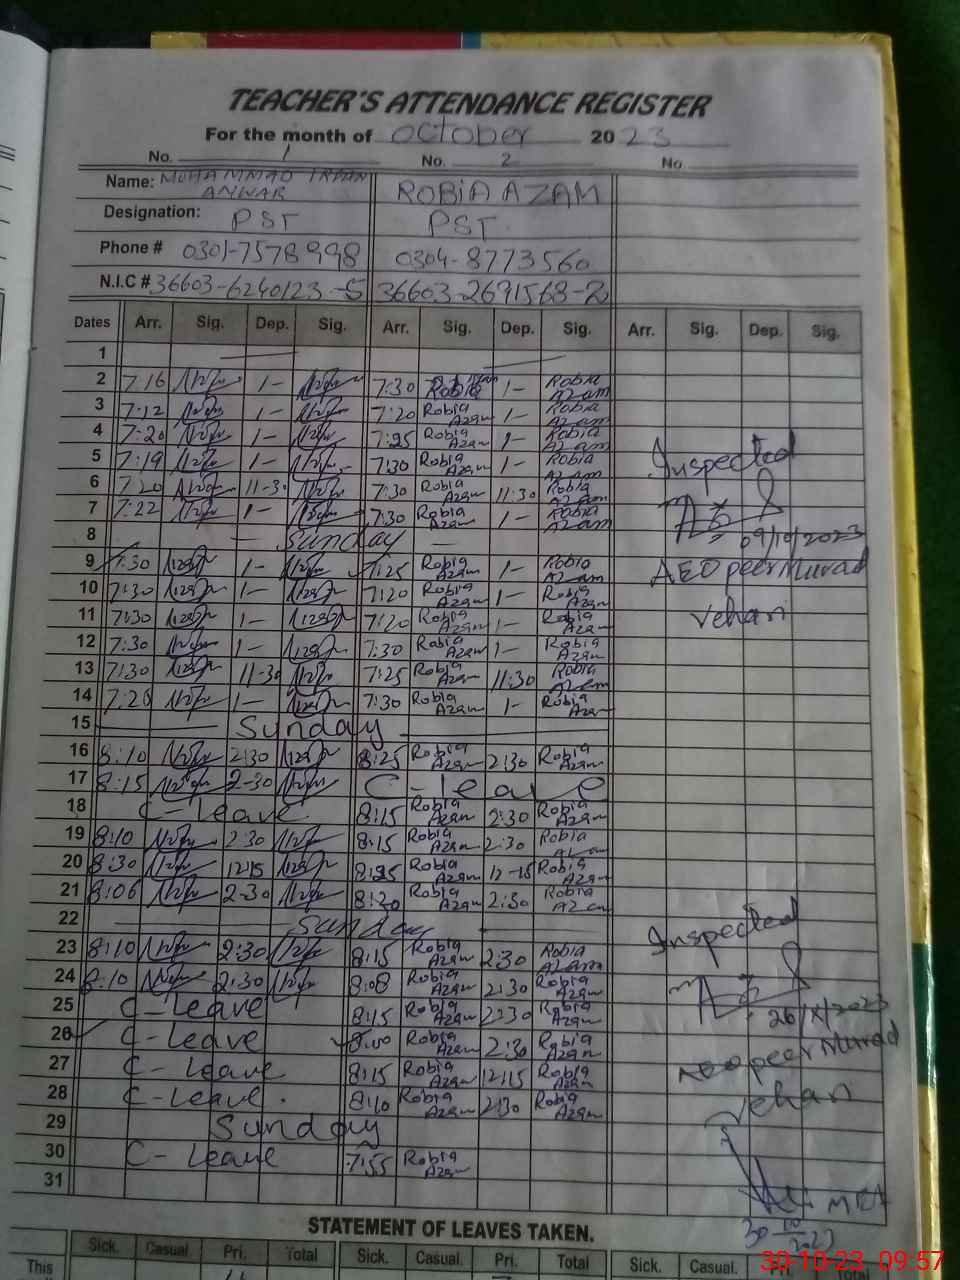 TEACHER'S ATTENDANCE REGISTER
For the month of October 2023
No. 1 No. 2 No.
Name: MUHAMMAD IRFAN ANWAR ROBIA AZAM
Designation: PST PST
Phone # 0301-7578998 0304-8773560
N.I.C # 36603-6240123-5 36603-2691568-2
Dates Arr. Sig. Dep. Sig. Arr. Sig. Dep. Sig. Arr. Sig. Dep. Sig.
1
2 7:16 1- 7:30 Robia 1- Robia Azam
3 7:12 1- 7:20 Robia Azam 1- Robia Azam
4 7:20 1- 7:25 Robia Azam 1- Robia Azam
5 7:19 1- 7:30 Robia Azam 1- Robia Azam
6 7:20 11-30 7:30 Robia Azam 11:30 Robia Azam
7 7:22 1- 7:30 Robia Azam 1- Robia Azam
8 Sunday
9 7:30 1- 7:25 Robia Azam 1- Robia Azam
10 7:30 1- 7:20 Robia Azam 1- Robia Azam
11 7:30 1- 7:20 Robia Azam 1- Robia Azam
12 7:30 1- 7:30 Robia Azam 1- Robia Azam
13 7:30 11-30 7:25 Robia Azam 11:30 Robia Azam
14 7:20 1- 7:30 Robia Azam 1- Robia Azam
15 Sunday
16 8:10 2:30 8:25 Robia Azam 2:30 Robia Azam
17 8:15 2-30 C-leave
18 C-Leave 8:15 Robia Azam 2:30 Robia Azam
19 8:10 2:30 8:15 Robia Azam 2:30 Robia Azam
20 8:30 12:15 8:25 Robia Azam 12-15 Robia Azam
21 8:06 2-30 8:20 Robia Azam 2:30 Robia Azam
22 Sunday
23 8:10 2:30 8:15 Robia Azam 2:30 Robia Azam
24 8:10 2:30 8:08 Robia Azam 2:30 Robia Azam
25 C-leave 8:15 Robia Azam 2:30 Robia Azam
26 C-Leave 8:00 Robia Azam 2:30 Robia Azam
27 C-Leave 8:15 Robia Azam 12:15 Robia Azam
28 C-Leave. 8:10 Robia Azam 2:30 Robia Azam
29 Sunday
30 C-Leave 7:55 Robia Azam
31
Inspected
09/10/2023
AEO peer Murad
Vehari
Inspected
26/X/2023
AEO peer Murad
Vehari
30-10-2023
STATEMENT OF LEAVES TAKEN.
Sick. Casual. Pri. Total Sick. Casual. Pri. Total Sick. Casual. Pri.
This
30-10-23 09:57